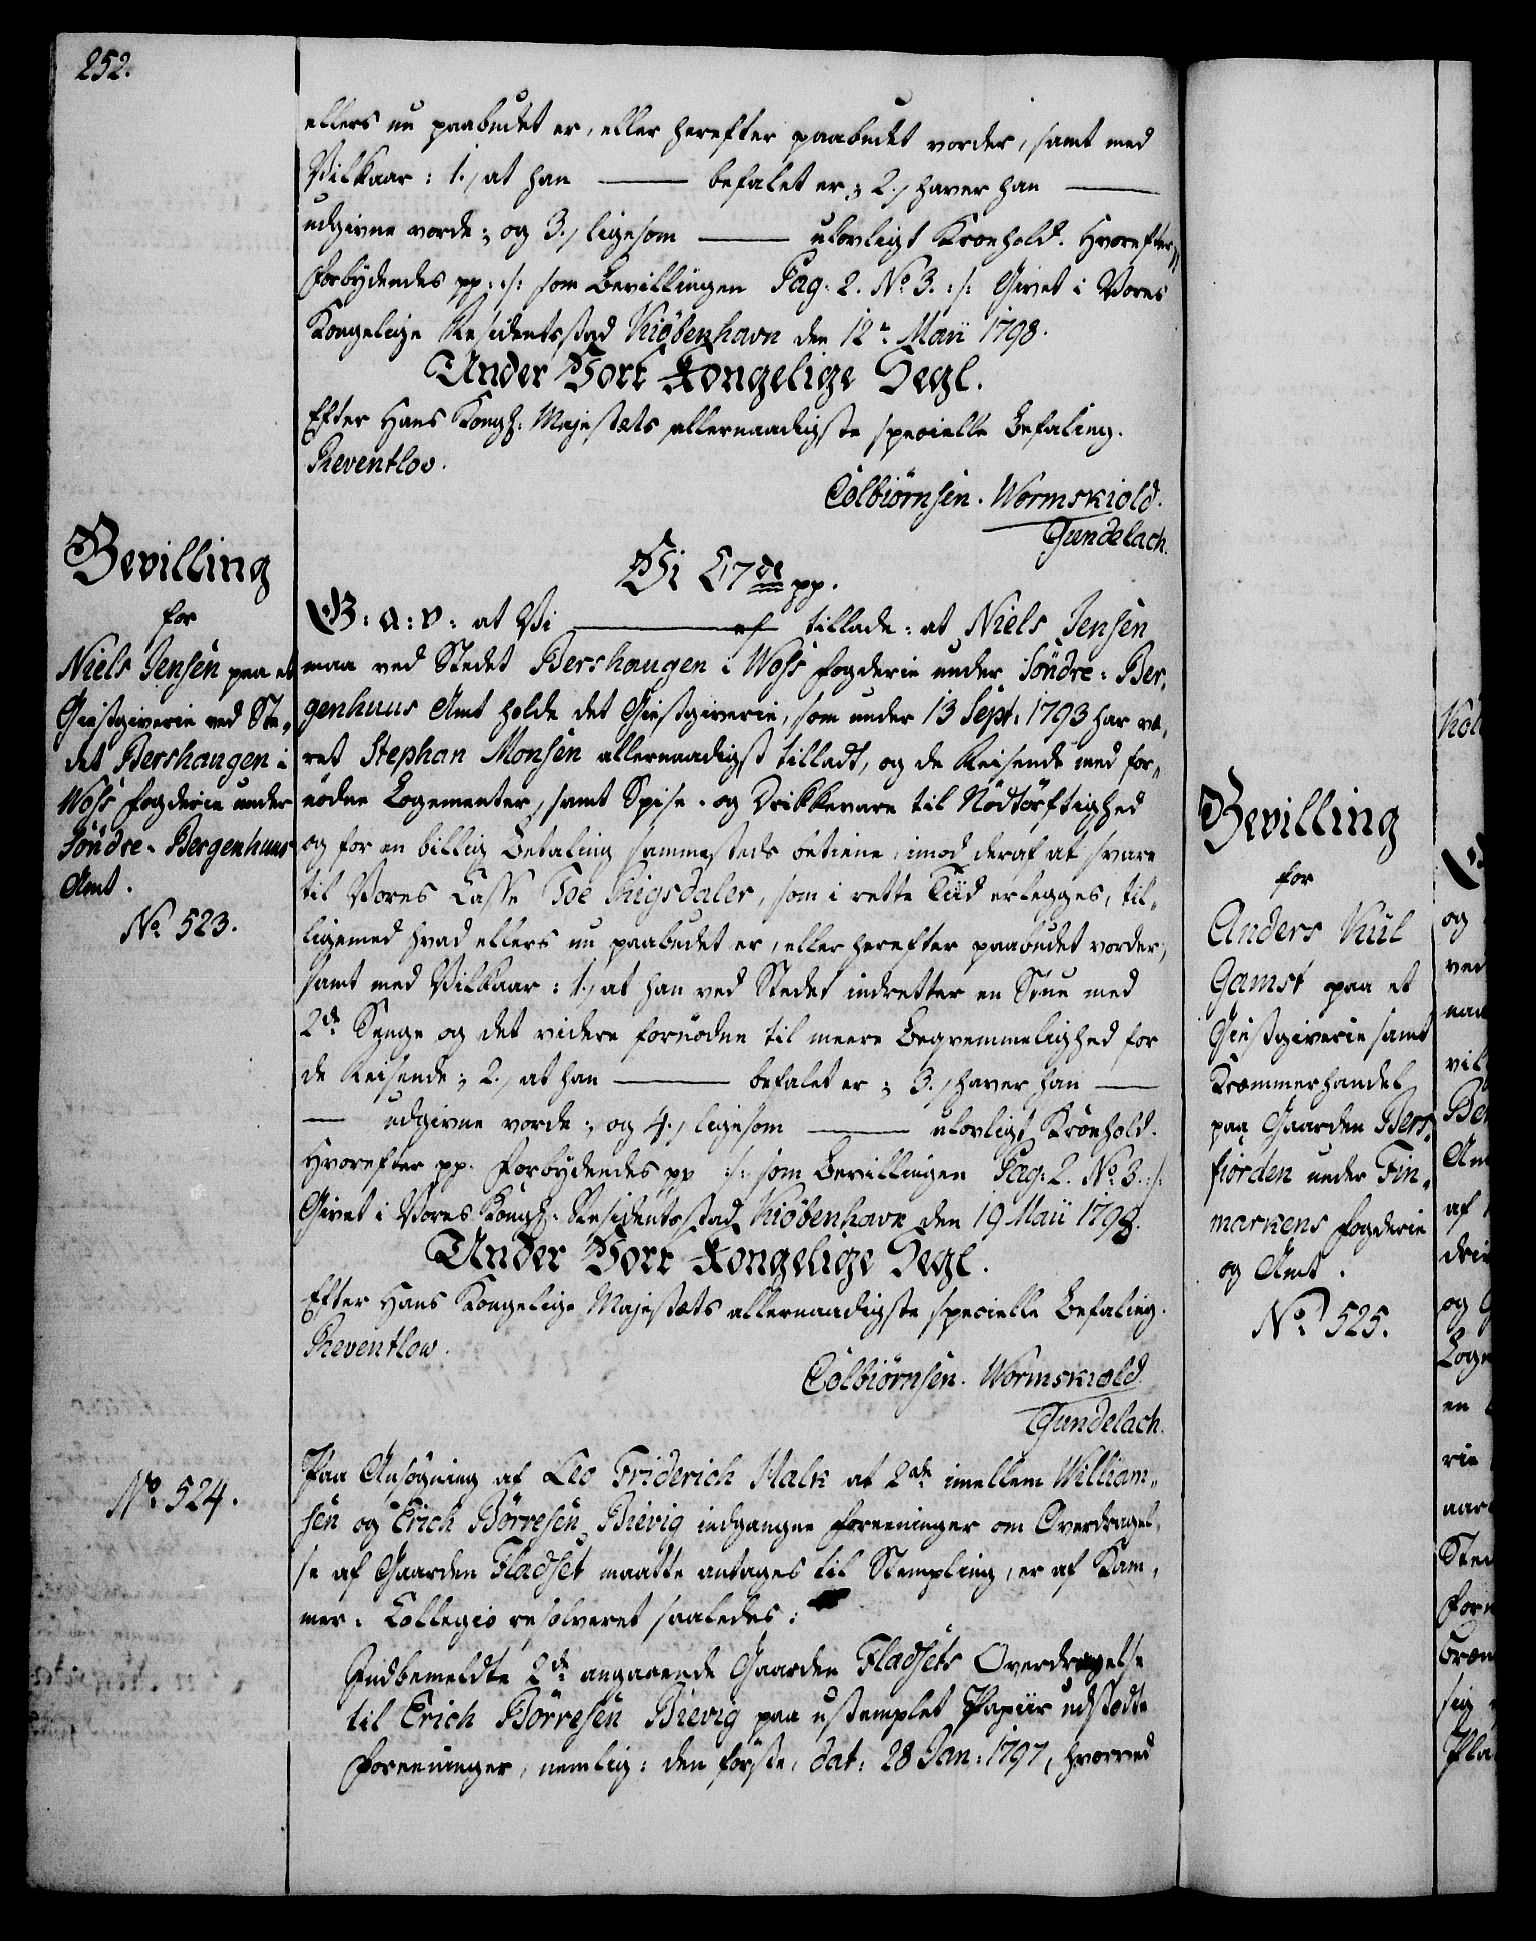 252.
ellers nu paabudet er, eller herefter paabudet vorder, samt med
Vilkaar: 1., at han ——— befalet er; 2., haver han ———
udgivne vorde; og 3., ligesom ——— ulovligt Kroehold. Hvorefter
Forbydendes pp: :/: som Bevillingen Pag. 2. No 3. :/: Givet i Vores
Kongelige Residentsstad Kiöbenhavn den 12te Maii 1798.
Under Vort Kongelige Segl.
Efter Hans Kongl: Majestæts allernaadigste specielle Befaling.
Reventlov.
Colbiörnsen. Wormskiold.
Gundelach.
Bevilling
for
Niels Jensen paa et
Giestgiverie ved Ste-
det Bershaugen i
Woss Fogderie under
Söndre-Bergenhuus
Amt.
No 523.
Vi C. 7de pp.
G: a: v: at Vi ——— tillade: at Niels Jensen
maa ved Stedet Bershaugen i Woss Fogderie under Söndre-Ber-
genhuus Amt holde det Giestgiverie, som under 13 Sept: 1793 har væ-
ret Stephan Monsen allernaadigst tilladt, og de Reisende med for-
nödne Logementer, samt Spise- og Drikkevare til Nödtörftighed
og for en billig Betaling sammesteds betiene, imod deraf at svare
til Vores Casse Toe Rigsdaler, som i rette Tiid erlegges, til-
ligemed hvad ellers nu paabudet er, eller herefter paabudet vorder,
samt med Vilkaar: 1., at han ved Stedet indretter en Stue med
2de Senge og det videre fornödne til meere Beqvemmelighed for
de Reisende; 2., at han ——— befalet er; 3., haver han ———
— udgivne vorde; og 4., ligesom ——— ulovligt Kroehold.
Hvorefter pp. Forbydendes pp :/: som Bevillingen Pag: 2. No 3. :/:
Givet i Vores Kongl. Residentsstad Kiöbenhavn den 19 Maii 1798.
Under Vort Kongelige Segl.
Efter Hans Kongelige Majestæts allernaadigste specielle Befaling.
Reventlow.
Colbiörnsen. Wormskiold.
Gundelach.
No 524.
Paa Ansögning af Leo Friderich Halk at 2de imellem William-
sen og Erich Börresen Bievig indgangne Foreeninger om Overdragel-
se af Gaarden Fladset maatte antages til Stempling, er af Kam-
mer-Collegio resolveret saaledes:
Indbemeldte 2de angaaende Gaarden Fladsets Overdragelse
til Erich Börresen Bievig paa ustemplet Papiir udstædte
Foreeninger, nemlig: den förste, dat: 28 Jan: 1797, hvorved
Bevilling
for
Anders Kiil
Gamst paa et
Giestgiverie samt
Kræmmerhandel
paa Gaarden Bers-
fiorden under Fin-
markens Fogderie
og Amt.
No 525.